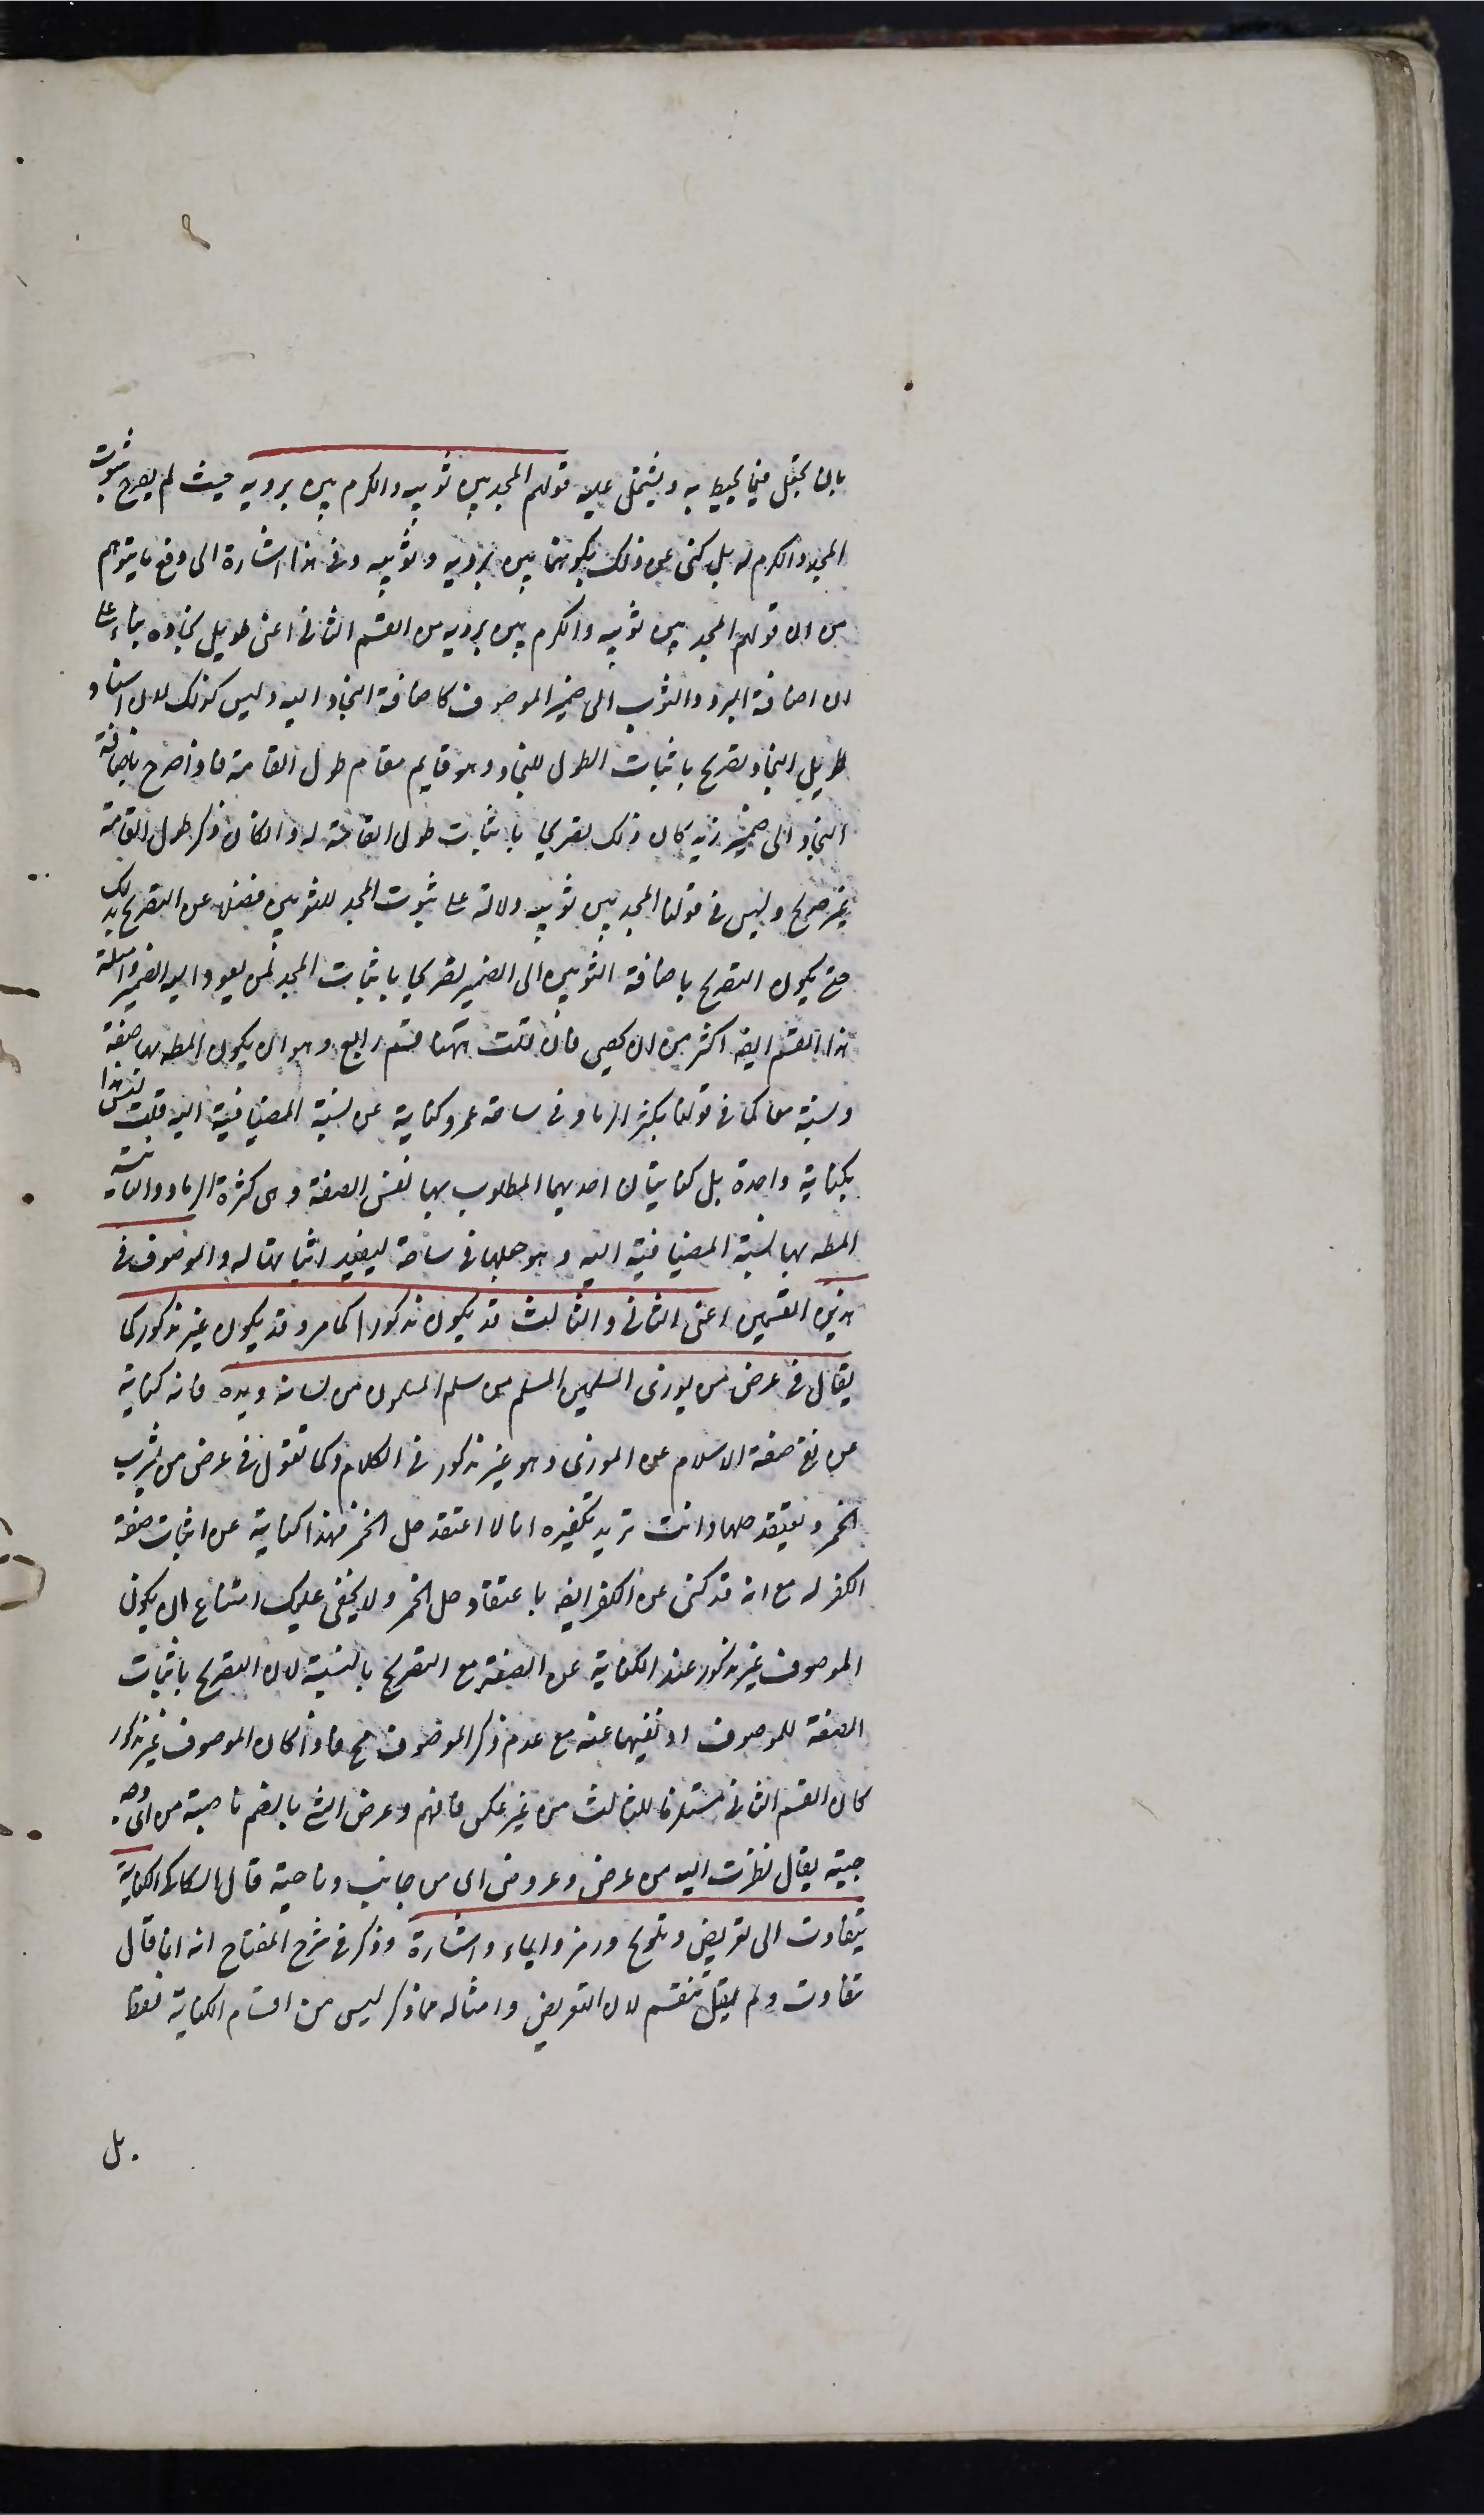 بان يجعل فيما يحيط به ويشتمل عليه قولهم المجد بين ثوبيه والكرم بين برديه حيث لم يصرح بثبوت
المجد والكرم له بل كنى عن ذلك بكونهما بين برديه وثوبيه وفى هذا اشارة الى دفع ما يتوهم
من ان قولهم المجد بين ثوبيه والكرم بين برديه من القسم الثانى اعنى طويل نجاده بناء على
ان اضافة البرد والثوب الى ضمير الموصوف كاضافة النجاد اليه وليس كذلك لان اسناد
طويل النجاد تصريح باثبات الطول للنجاد وهو قايم مقام طول القامة فاذا صرح باضافة
النجاد الى ضمير زيد كان ذلك تصريحا باثبات طول القامة له وان كان ذكر طول القامة
غير صريح وليس فى قولنا المجد بين ثوبيه دلالة على ثبوت المجد للثوبين فضلا عن التصريح بذلك
حتى يكون التصريح باضافة الثوبين الى الضمير تصريحا باثبات المجد لمن يعود اليه الضمير وامثلة
هذا القسم ايضه اكثر من ان يحصى فان قلت ههنا قسم رابع وهو ان يكون المطه بها صفة
ونسبة معا كما فى قولنا يكثر الرماد فى ساحة عمرو كناية عن نسبة المضيافية اليه قلت ليس هذا
بكناية واحدة بل كنايتان احديهما المطلوب بها نفس الصفة وهى كثرة الرماد والثانية
المطه بها نسبة المضيافية اليه وهو جعلها فى ساحة ليفيد اثباتها له والموصوف فى
هذين القسمين اعنى الثانى والثالث قد يكون مذكورا كما مر وقد يكون غير مذكور كما
يقال فى عرض من يوذى المسلمين المسلم من سلم المسلمون من لسانه ويده فانه كناية
عن نفى صفة الاسلام عن الموذى وهو غير مذكور فى الكلام وكما تقول فى عرض من يشرب
الخمر ويعتقد حلها وانت تريد تكفيره انا لا اعتقد حل الخمر فهذا كناية عن اثبات صفة
الكفر له مع انه قد كنى عن الكفر ايضه باعتقاد حل الخمر ولا يخفى عليك امتناع ان يكون
الموصوف غير مذكور عند الكناية عن الصفة مع التصريح بالنسبة لان التصريح باثبات
الصفة للموصوف او نفيها عنه مع عدم ذكر الموصوف مح فاذا كان الموصوف غير مذكور
كان القسم الثانى مستلزما للثالث من غير عكس فافهم وعرض الشئ بالضم ناحيته من اى وجه
جيته يقال نظرت اليه من عرض وعرض اى من جانب وناحية قال السكاكى الكناية
يتفاوت الى تعريض وتلويح ورمز وايماء واشارة وذكر فى شرح المفتاح انه انما قال
تتفاوت ولم يقل تنقسم لان التعريض وامثاله مما ذكر ليس من اقسام الكناية فقط
بل